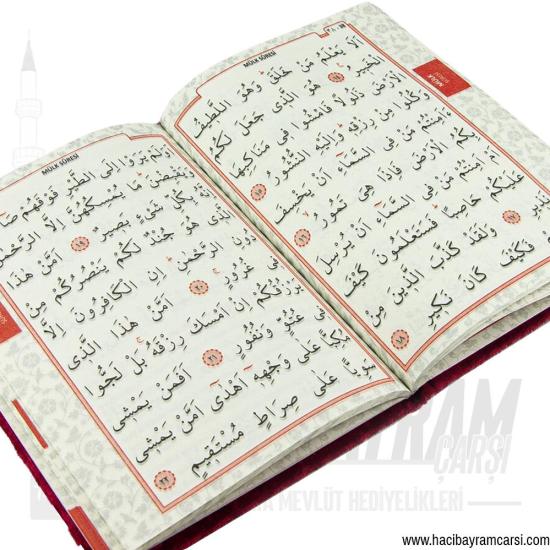 MÜLK SÛRESİ
MÜLK
اَلَا يَعْلَمُ مَنْ خَلَقَ وَهُوَ اللَّطِيفُ
الْخَبِيرُ ﴿١٤﴾ هُوَ الَّذِى جَعَلَ لَكُمُ
الْاَرْضَ ذَلُولًا فَامْشُوا فِى مَنَاكِبِهَا
وَكُلُوا مِنْ رِزْقِهِ وَاِلَيْهِ النُّشُورُ ﴿١٥﴾
ءَاَمِنْتُمْ مَنْ فِى السَّمَاءِ اَنْ يَخْسِفَ
بِكُمُ الْاَرْضَ فَاِذَا هِىَ تَمُورُ ﴿١٦﴾ اَمْ
اَمِنْتُمْ مَنْ فِى السَّمَاءِ اَنْ يُرْسِلَ
عَلَيْكُمْ حَاصِبًا فَسَتَعْلَمُونَ كَيْفَ
نَذِيرِ ﴿١٧﴾ وَلَقَدْ كَذَّبَ الَّذِينَ مِنْ
فَكَيْفَ كَانَ نَكِيرِ ﴿١٨﴾
MÜLK SÛRESİ
اَوَلَمْ يَرَوْا اِلَى الطَّيْرِ فَوْقَهُمْ
وَيَقْبِضْنَ مَا يُمْسِكُهُنَّ اِلَّا الرَّحْمٰنُ
بِكُلِّ شَىْءٍ بَصِيرٌ ﴿١٩﴾ اَمَّنْ هٰذَا
الَّذِى هُوَ جُنْدٌ لَكُمْ يَنْصُرُكُمْ مِنْ
دُونِ الرَّحْمٰنِ اِنِ الْكَافِرُونَ اِلَّا
فِى غُرُورٍ ﴿٢٠﴾ اَمَّنْ هٰذَا الَّذِى
يَرْزُقُكُمْ اِنْ اَمْسَكَ رِزْقَهُ بَلْ لَجُّوا
فِى عُتُوٍّ وَنُفُورٍ ﴿٢١﴾ اَفَمَنْ يَمْشِى
مُكِبًّا عَلٰى وَجْهِهِ اَهْدٰى اَمَّنْ يَمْشِى
سَوِيًّا عَلٰى صِرَاطٍ مُسْتَقِيمٍ ﴿٢٢﴾
ÇARŞI
MEVLÜT HEDİYELİKLERİ
www.hacibayramcarsi.com